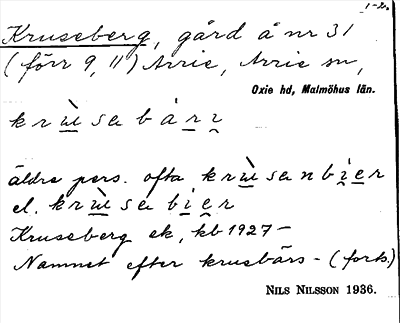 1-2.
Kruseberg, gård å nr 31
(förr 9, 11) Arrie, Arrie sn,
Oxie hd, Malmöhus län.
krùsabári
äldre pers. ofta krùsanbier
el. krùsabier
Kruseberg ek, kb 1927–
Namnet efter krusbärs- (forts.)
NILS NILSSON 1936.